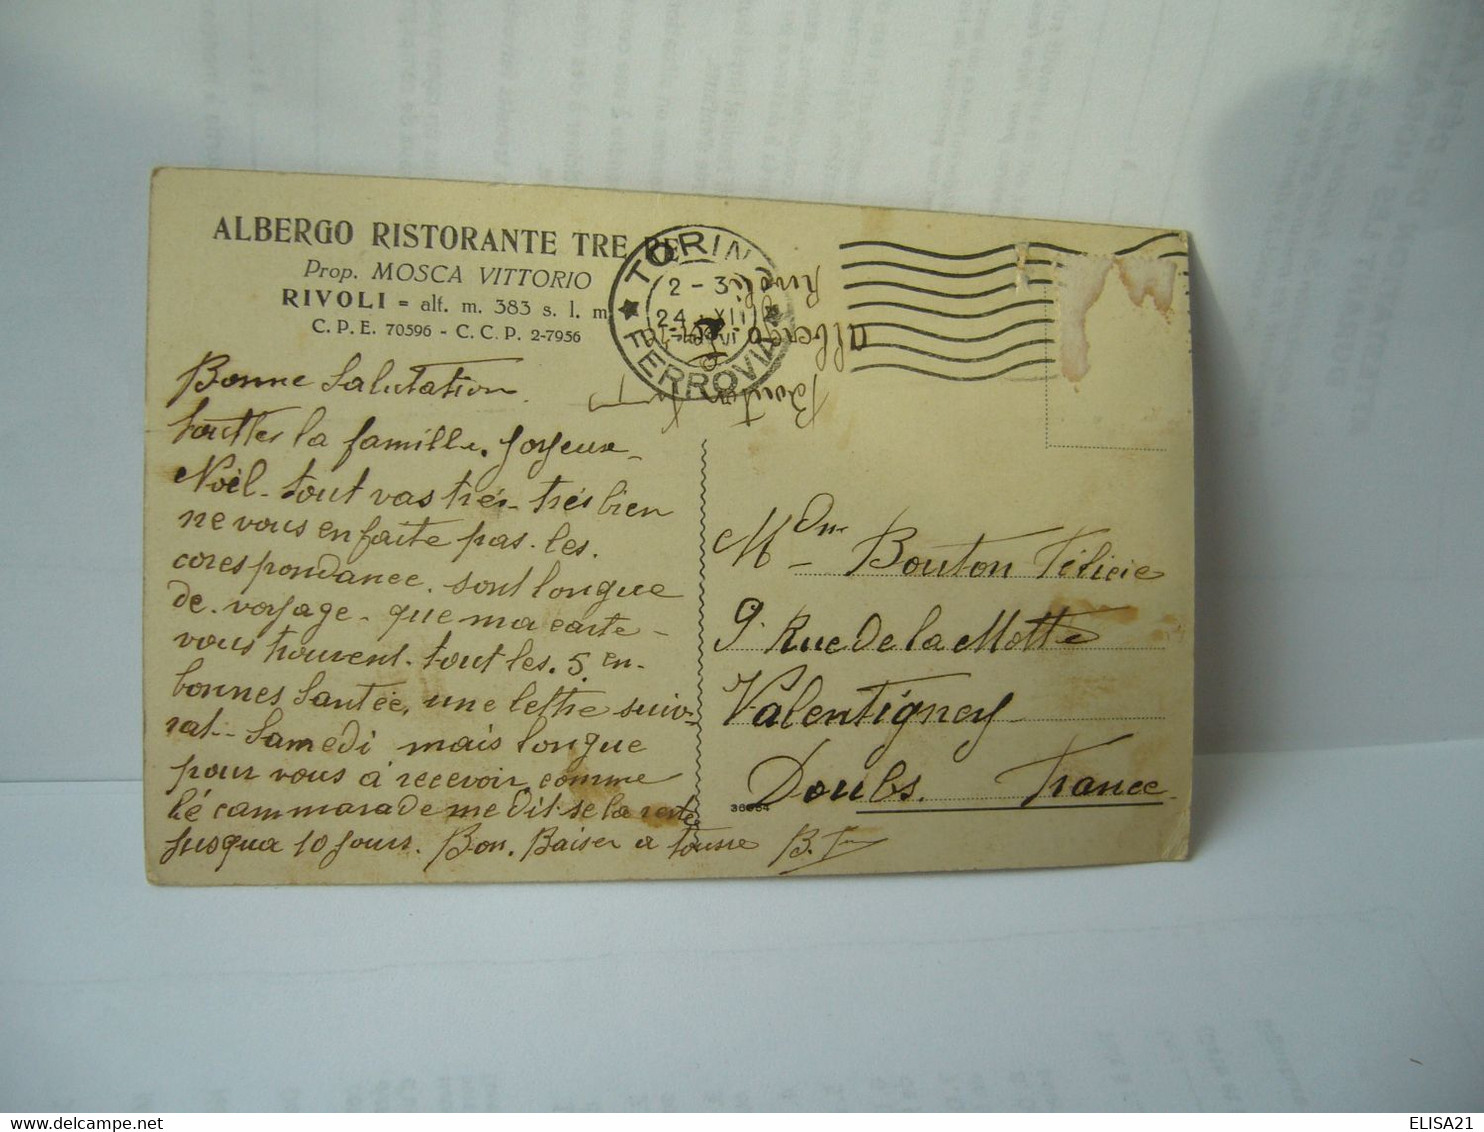 ALBERGO RISTORANTE TRE RE
Prop. MOSCA VITTORIO
RIVOLI = alt. m. 383 s. l. m.
C. P. E. 70596 - C. C. P. 2-7956
TORINO
2 - 3
24 XII
FERROVIA
Bouton
albergo
Rivoli
Bonne Salutation
touttes la famille. Joyeux
Noël. tout vas très - très bien
ne vous en faite pas. les.
corespondance. sont longue
de. voyage - que ma carte -
vous trouvent. tout les. 5. en.
bonnes Santée, une lettre suiv-
rat - Samedi mais longue
pour vous à recevoir, comme
lé cammarade me dit. se la reste
Jusqua 10 Jours. Bon. Baiser a tousse B.
Mdm Bouton Félicie
9. Rue De la Motte
Valentigney
Doubs. France
36984
ELISA21